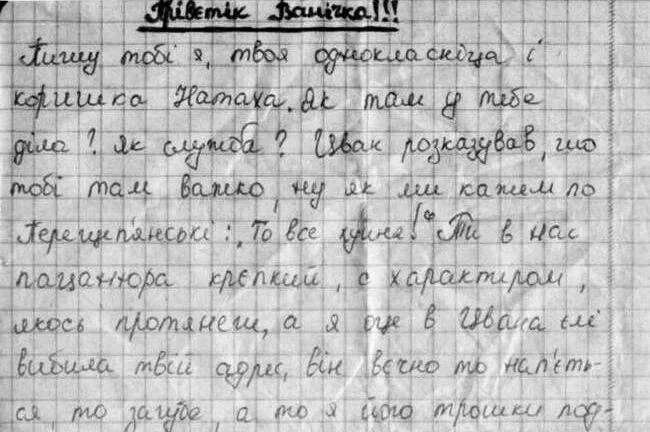 Прівєтік Ванічка!!!
Пишу тобі я, твоя однокласніца і
коришка Натаха. Як там у тебе
діла? Як служба? Цван розказував, шо
тобі там важко, ну як ми кажем по
Перещеп'янські: "То все хуйня!" Ти в нас
пацанюра крєпкий, с характіром,
якось протянеш, а я оце в Цвана єлі
вибила твій адрес, він вєчно то нап'єть-
ся, то загубе, а то я його трошки под-